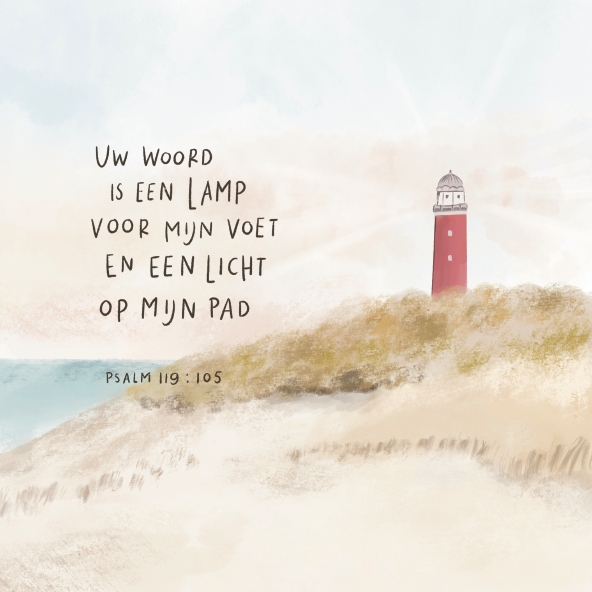 Uw woord
is een Lamp
voor mijn voet
en een Licht
op mijn pad
Psalm 119:105